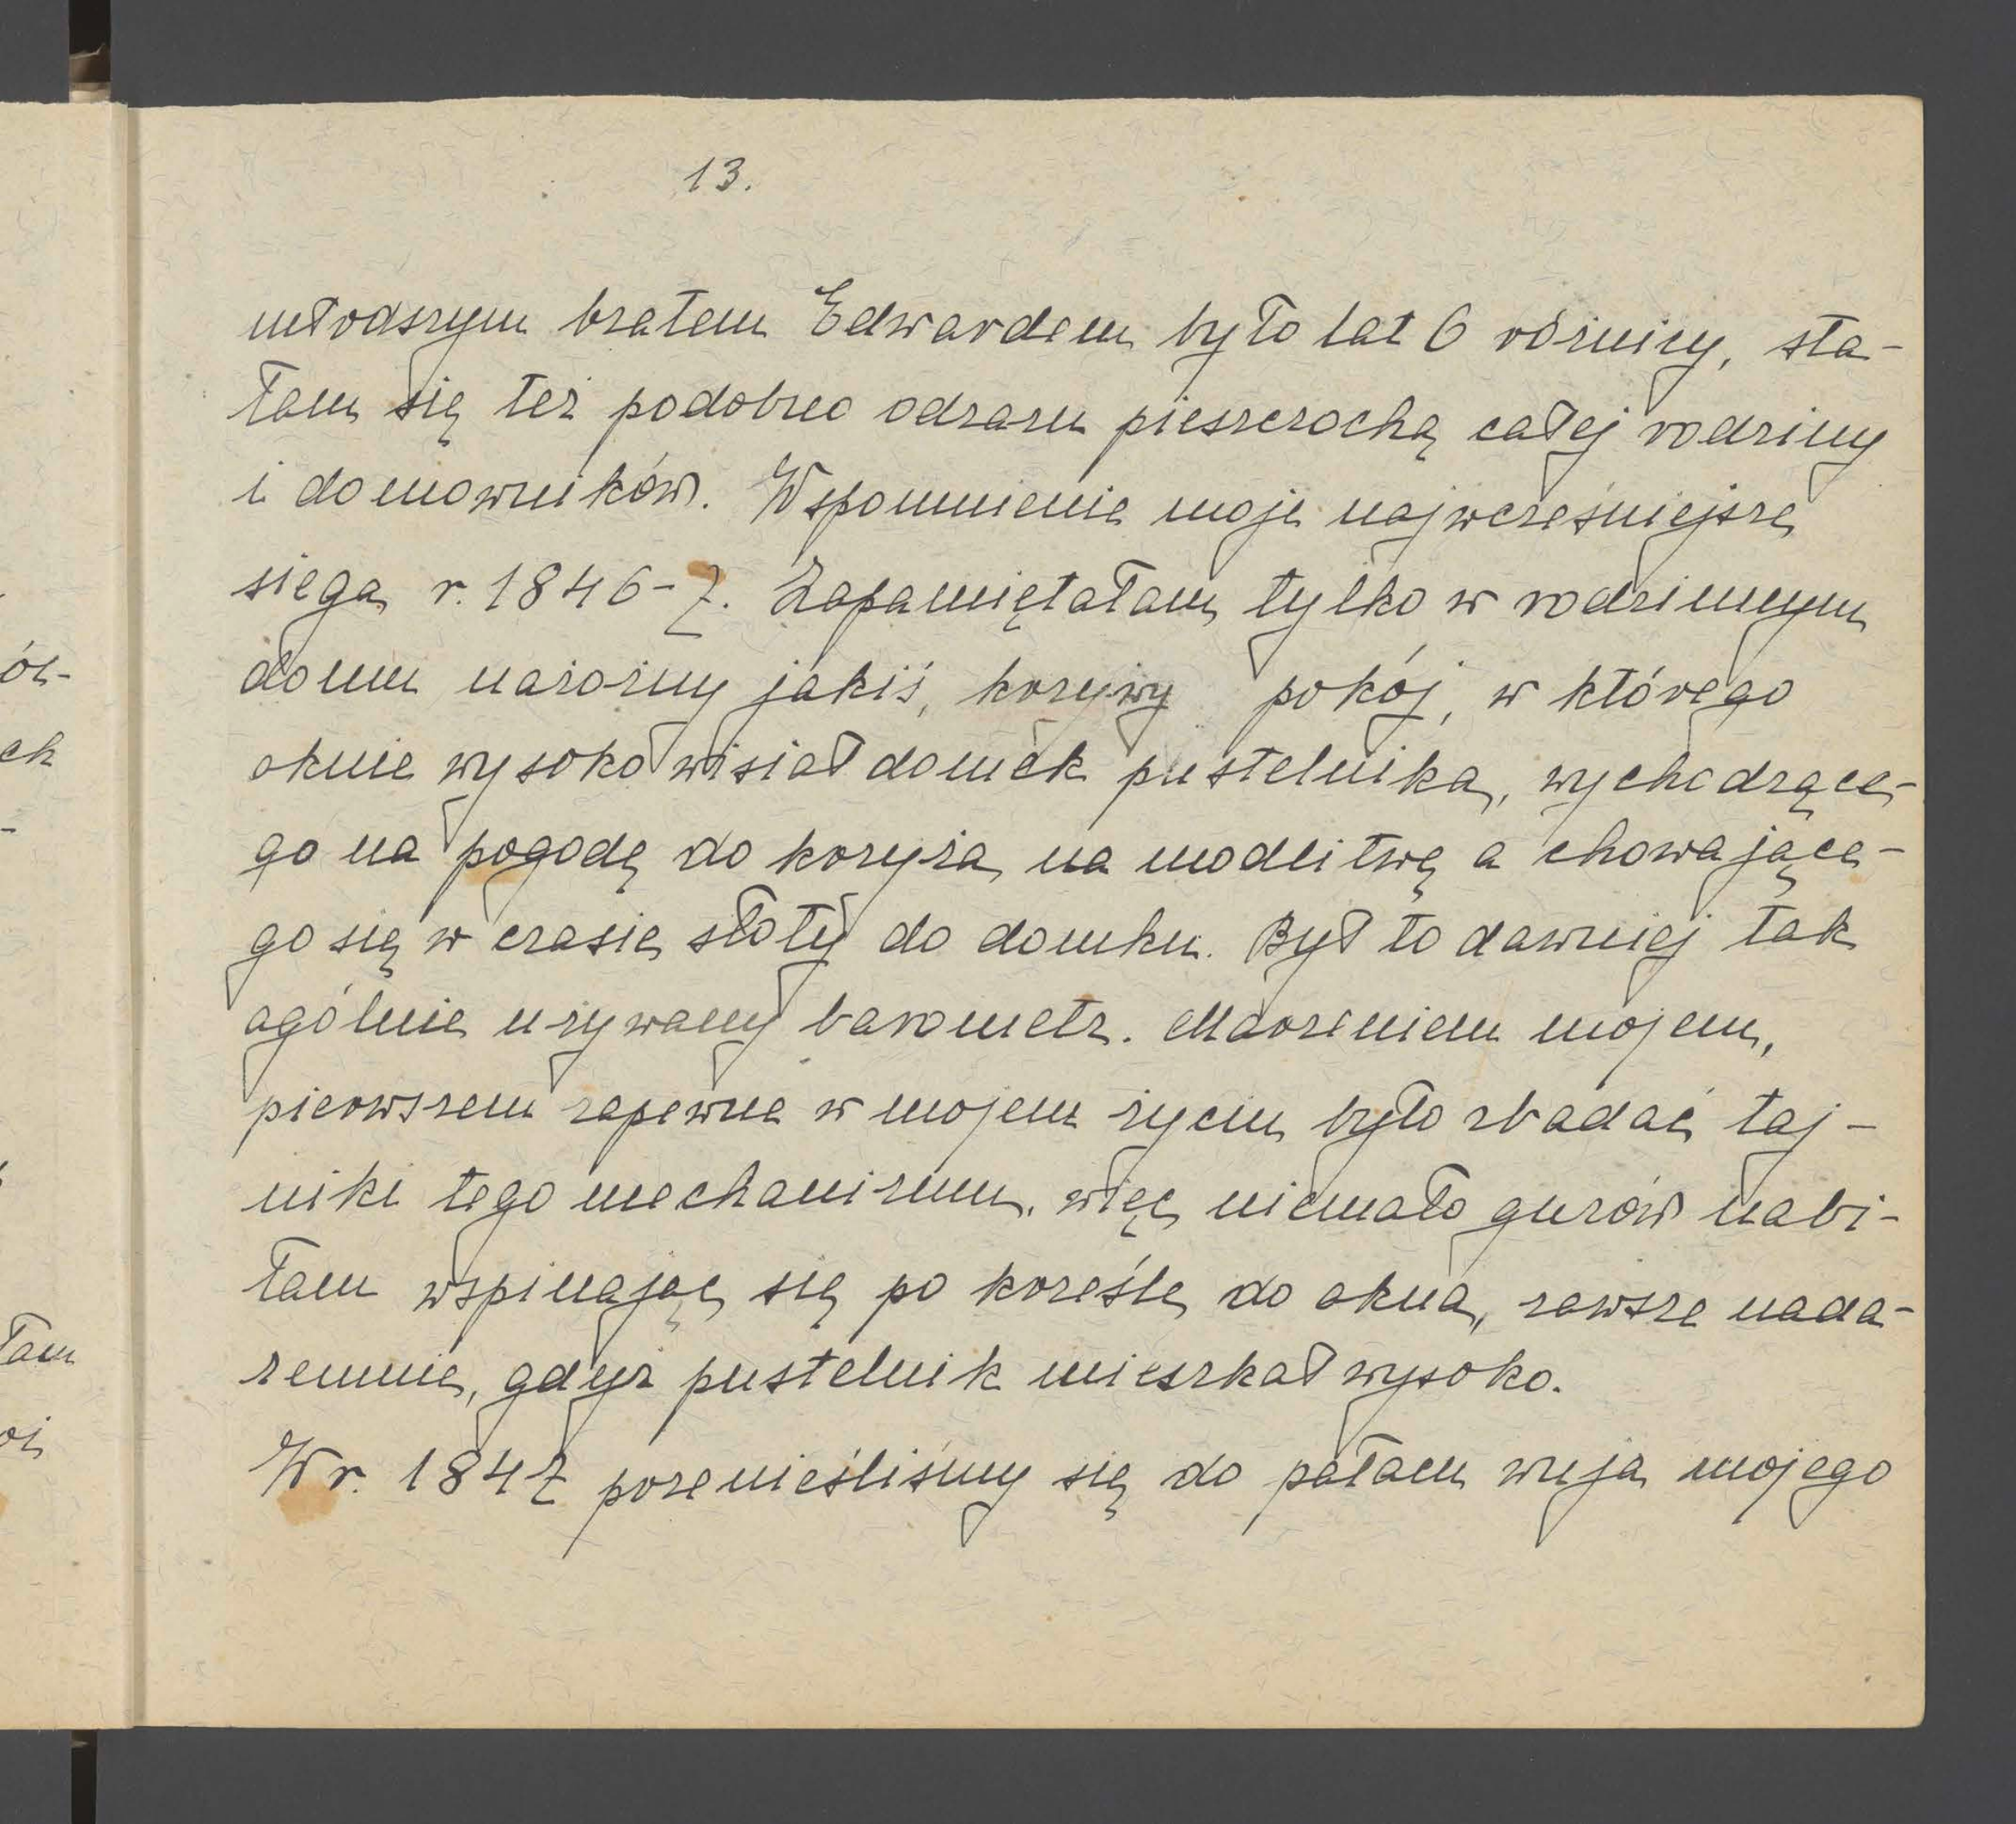 13.
młodszym bratem Edwardem było lat 6 różnicy, sta-
łam się też podobno odrazu pieszczochą całej rodziny
i domowników. Wspomnienie moje najwcześniejsze
sięga r. 1846-7. Zapamiętałam tylko w rodzinnym
domu narożny jakiś, krzywy pokój, w którego
oknie wysoko wisiał domek pustelnika, wychodzące-
go na pogodę do krzyża na modlitwę a chowające-
go się w czasie słoty do domku. Był to dawniej tak
ogólnie używany barometr. Marzeniem mojem,
pierwszem zapewne w mojem życiu było zbadać taj-
niki tego mechanizmu, więc niemało guzów nabi-
łam wspinając się po krześle do okna, zawsze nada-
remnie, gdyż pustelnik mieszkał wysoko.
W r. 1847 przenieśliśmy się do pałacu wuja mojego
ół-
ch
-
łam